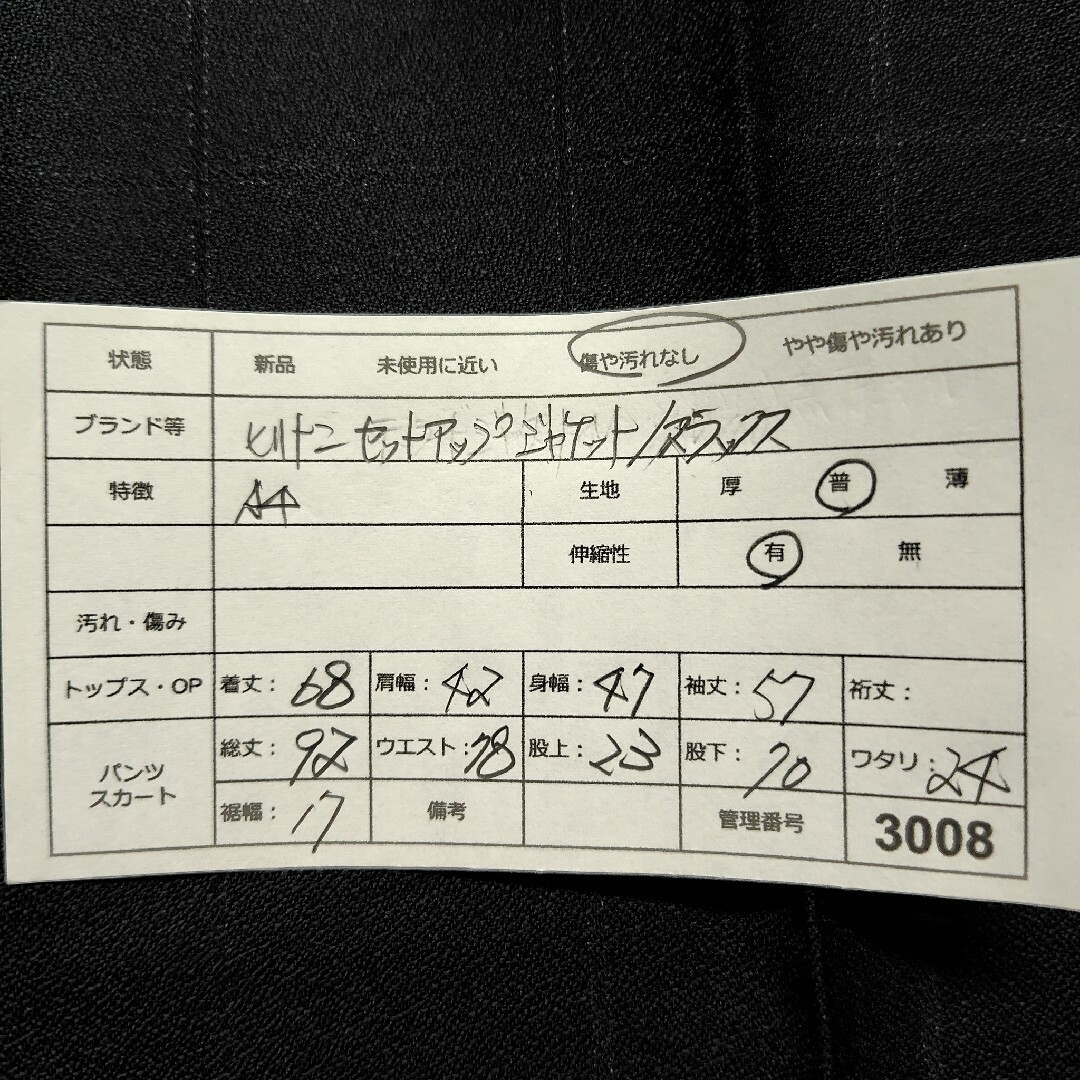 状態 新品 未使用に近い 傷や汚れなし やや傷や汚れあり
ブランド等 ヒルトン セットアップ ジャケット/スラックス
特徴 A4 生地 厚 普 薄
伸縮性 有 無
汚れ・傷み
トップス・OP 着丈: 68 肩幅: 42 身幅: 47 袖丈: 57 裄丈:
パンツ スカート 総丈: 92 ウエスト: 78 股上: 23 股下: 70 ワタリ: 24
裾幅: 17 備考 管理番号 3008